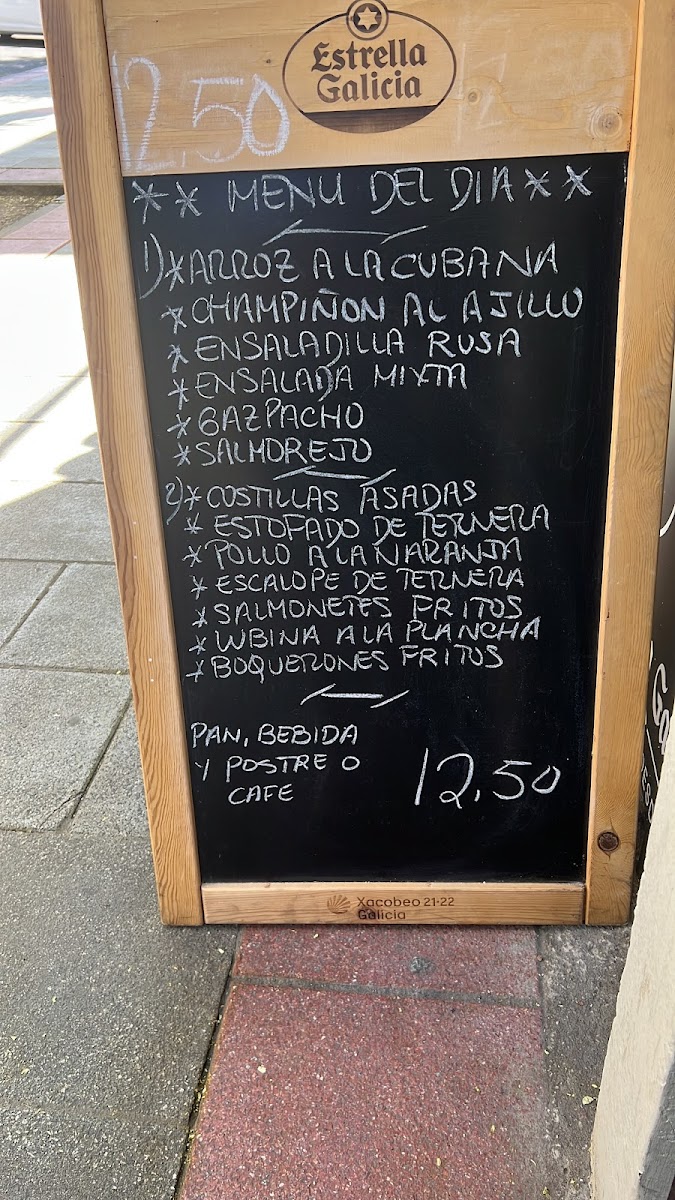 Estrella
Galicia
12,50
** MENU DEL DIA **
1) *ARROZ A LA CUBANA
*CHAMPIÑON AL AJILLO
*ENSALADILLA RUSA
*ENSALADA MIXTA
*GAZPACHO
*SALMOREJO
2) *COSTILLAS ASADAS
*ESTOFADO DE TERNERA
*POLLO A LA NARANJA
*ESCALOPE DE TERNERA
*SALMONETES FRITOS
*LUBINA A LA PLANCHA
*BOQUERONES FRITOS
PAN, BEBIDA
Y POSTRE O
CAFE
12,50
Xacobeo 21·22
Galicia